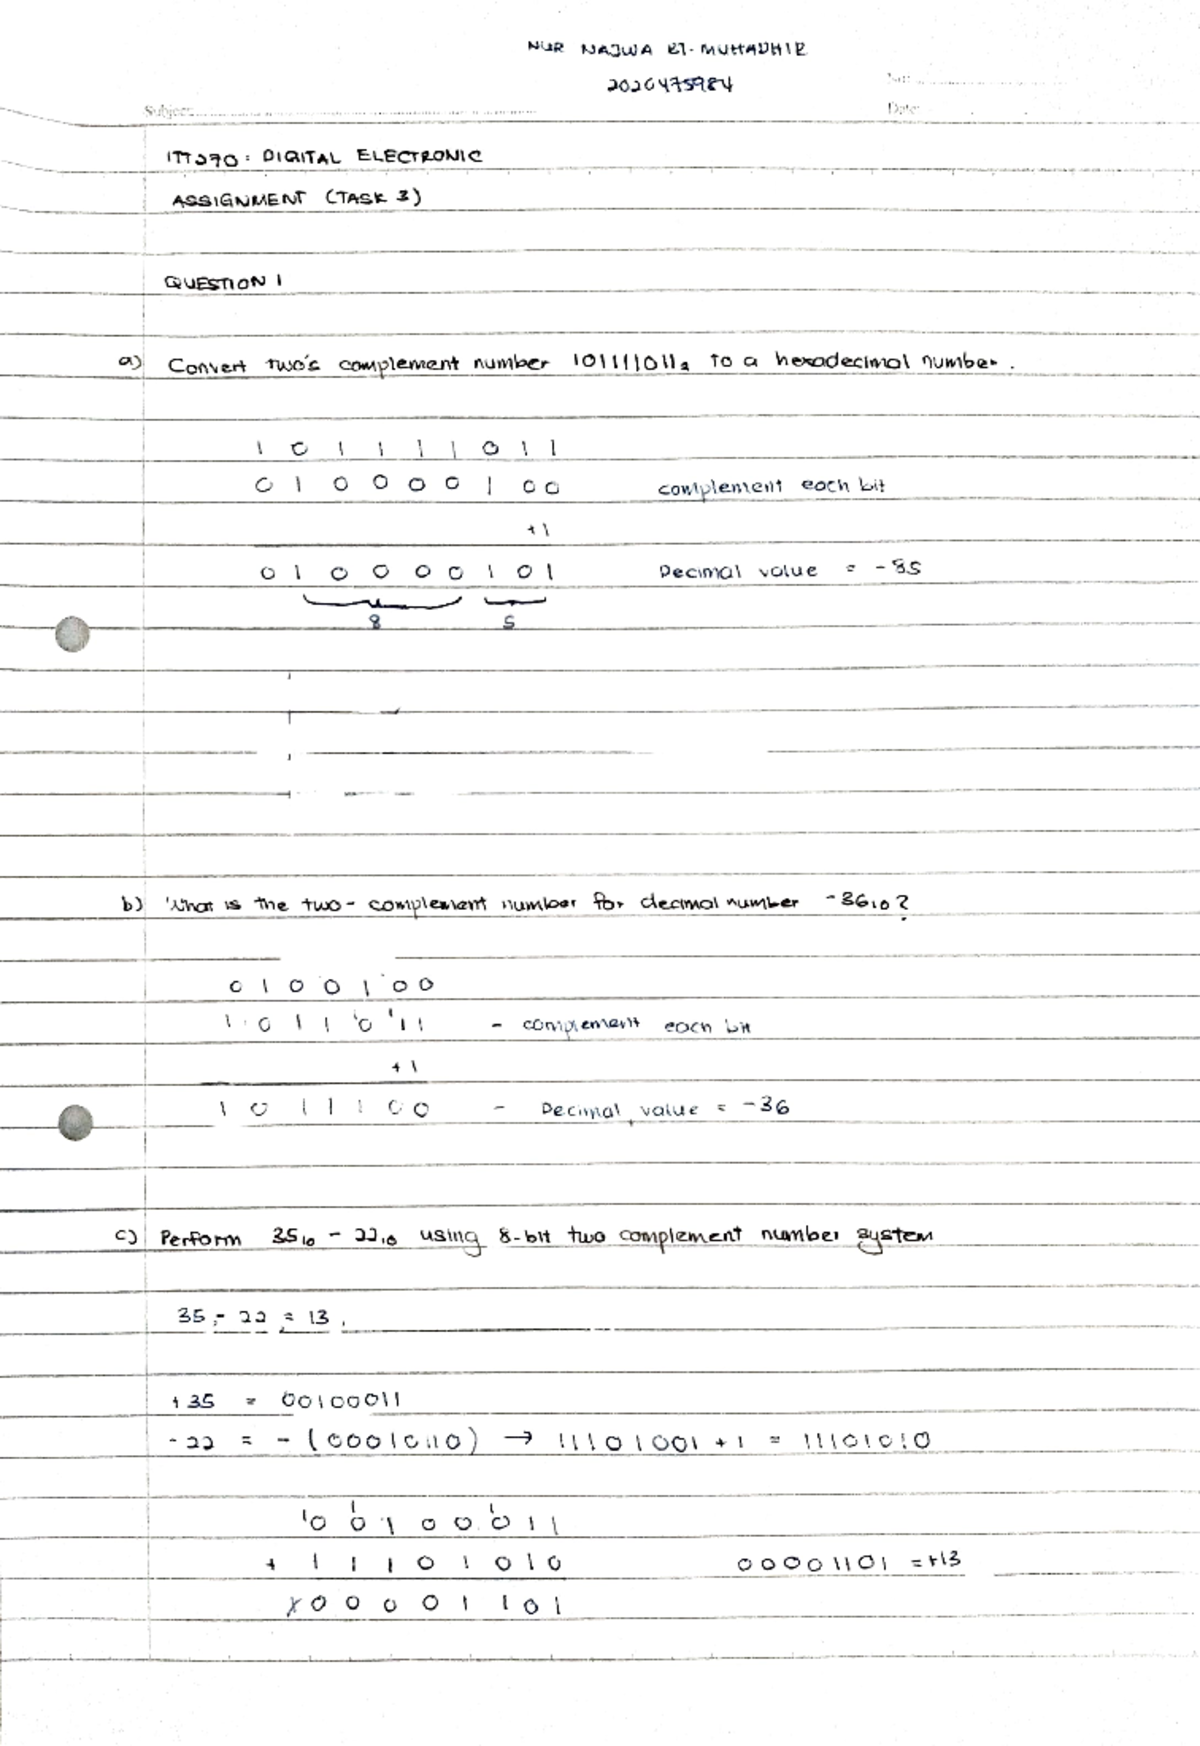 NUR NAJWA BT. MUHADHIR
2020475984
No:
Subject:
Date:
ITT270 : DIGITAL ELECTRONIC
ASSIGNMENT (TASK 3)
QUESTION 1
a) Convert two's complement number 101111011₂ to a hexadecimal number.
1 0 1 1 1 1 0 1 1
0 1 0 0 0 0 1 0 0 complement each bit
+1
0 1 0 0 0 0 1 0 1 Decimal value = -85
8 5
b) What is the two- complement number for decimal number -36₁₀?
0 1 0 0 1 0 0
1 0 1 1 0 1 1 - complement each bit
+1
1 0 1 1 1 0 0 - Decimal value = -36
c) Perform 35₁₀ - 22₁₀ using 8-bit two complement number system
35 - 22 = 13
+35 = 00100011
-22 = - (00010110) → 11101001 + 1 = 11101010
0 0 1 0 0 0 1 1
+ 1 1 1 0 1 0 1 0 00001101 = +13
0 0 0 0 1 1 0 1